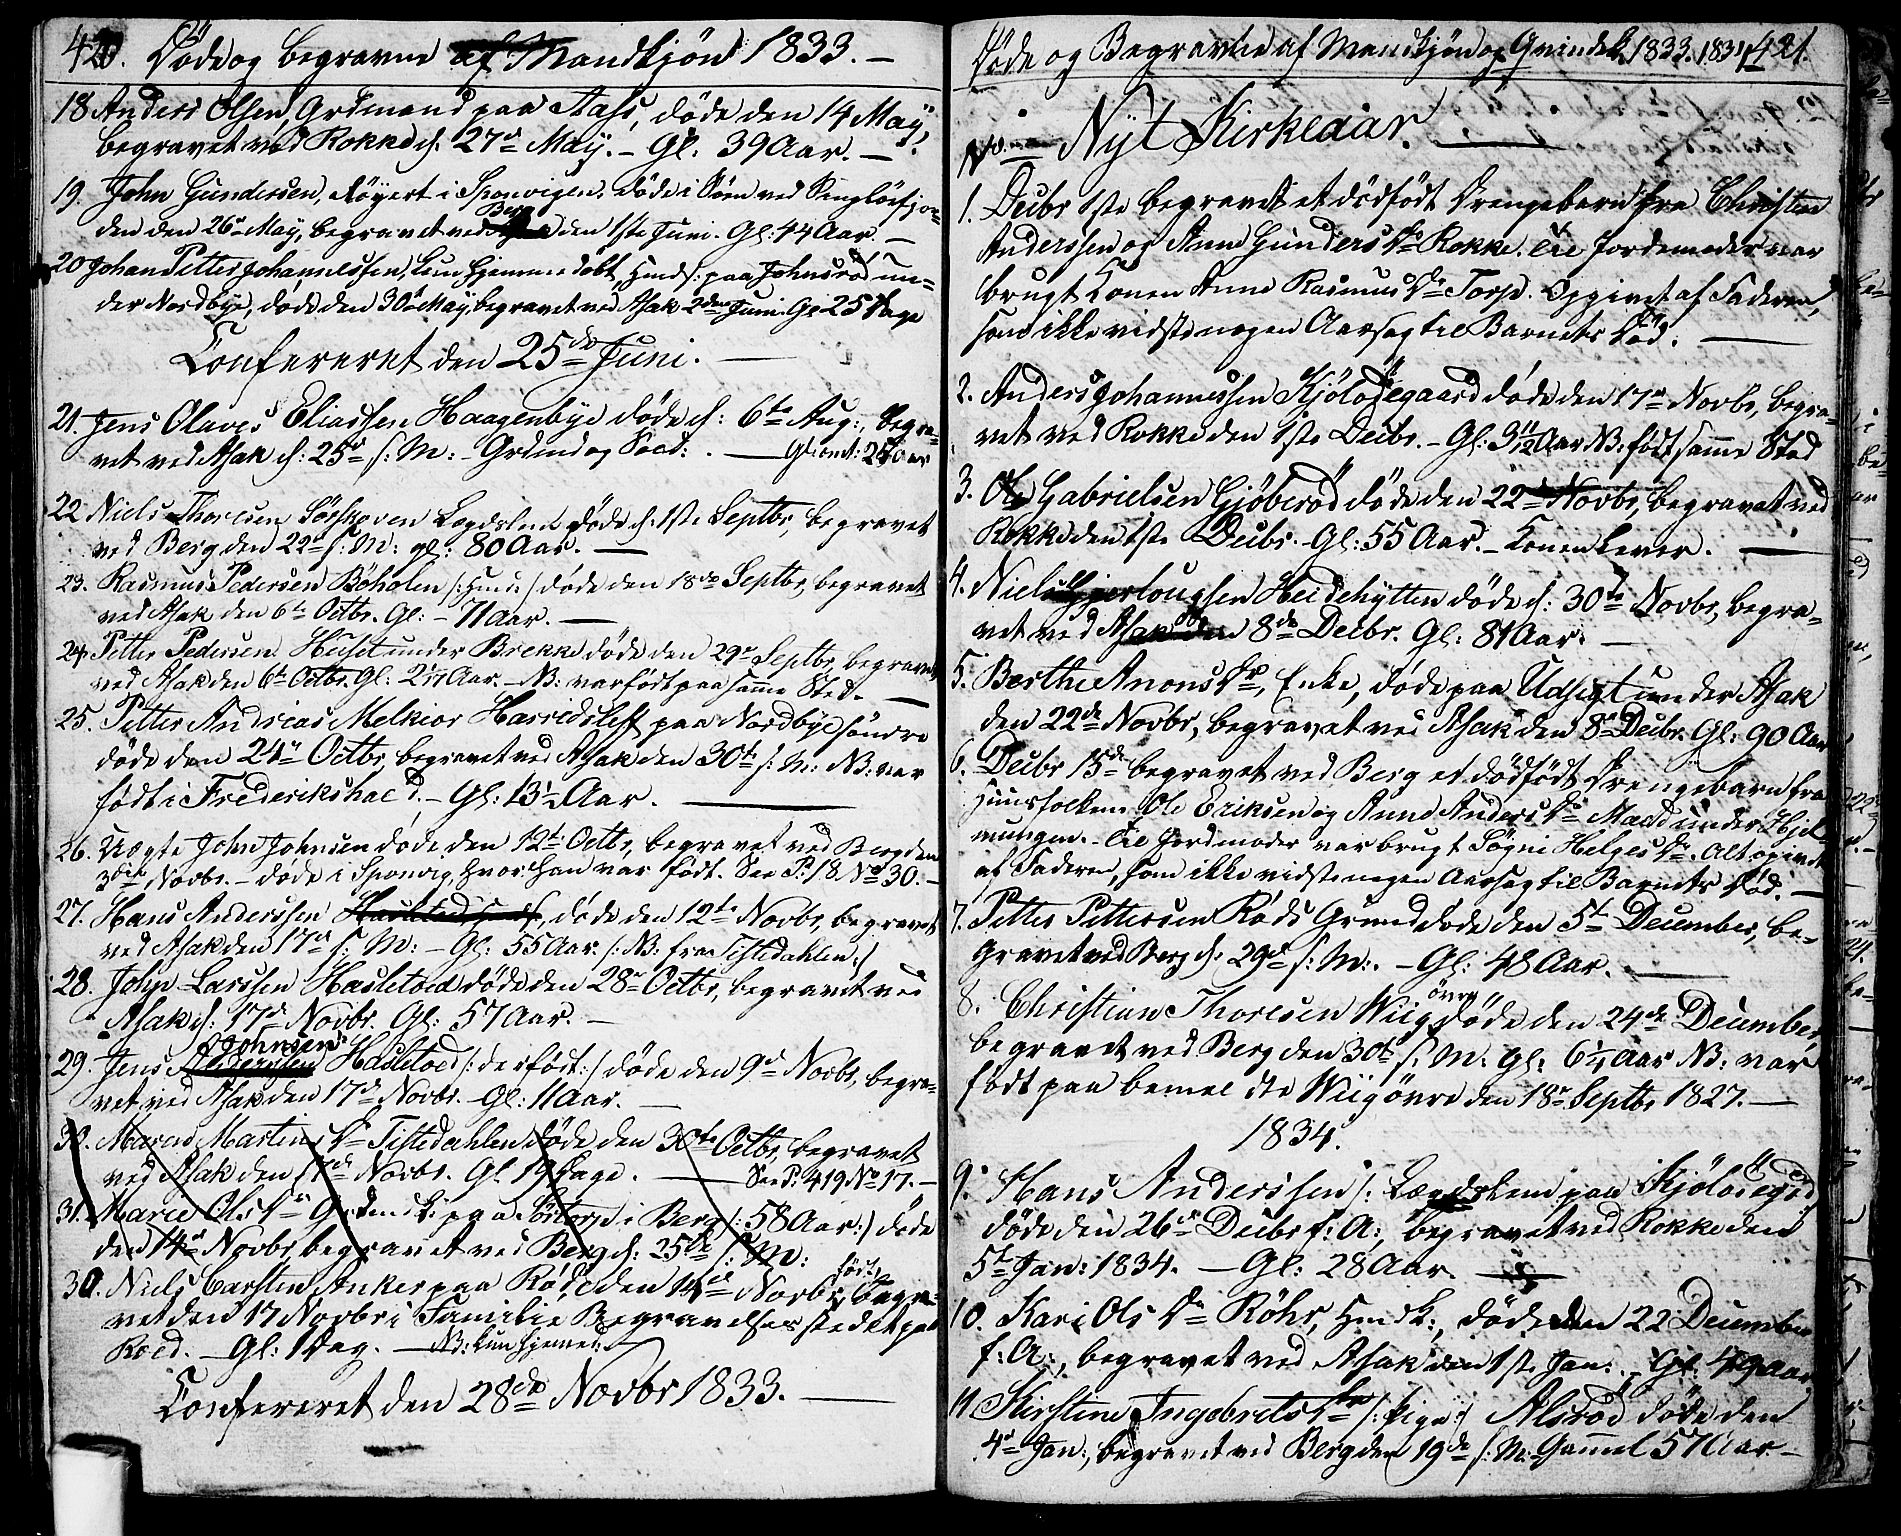 420. Døde og begravne af Mandkjøn 1833. –
18 Anders Olsen, Grdmand paa Aass, døde den 14 May,
begravet ved Rokke d: 27de May. – Gl: 39 Aar. –
19. John Gundersen, Løgert i Sponvigen, døde i Søen ved Singløefjor-
den den 26de May, begravet ved Berg den 1ste Juni. Gl: 44 Aar. –
20 Johan Petter Johannessen, kun hjemmedøbt, Hmds: paa Johnsrød un-
der Nordbye, døde den 30te May, begravet ved Asak 2den Juni. Gl 25 Dage
Confereret den 25de Juni. –
21. Jens Olaves Eliassen Haagenbye døde d: 6te Aug:, begra-
vet ved Asak d: 25de s: M: – Grdmd og Soed: . – Gl: omt: 28 Aar
22 Niels Thoresen Sørskoven Lægdslem døde d: 1ste Septbr, begravet
ved Berg den 22de s: M: gl: 80 Aar. –
23. Rasmus Pedersen Bøholen /: Hmd: / døde den 18de Septbr, begravet
ved Asak den 6te Octbr. Gl: – 71 Aar. –
24. Petter Pedersen Huset under Brekke døde den 29de Septbr, begravet
ved Asak den 6te Octbr. Gl: 2 1/4 Aar. – NB: var født paa samme Sted. –
25. Petter Andreas Melkior Harredslefs paa Nordbye søndre
døde den 24de Octbr, begravet ved Asak den 30te s: M: NB: var
født i Frederikshald. – Gl: 13 1/2 Aar. –
26. Uægte John Johnsen døde den 12te Octbr, begravet ved Berg den
3die Novbr. – døde i Sponvig, hvor han var født. See P: 18 No 30. –
27. Hans Anderssen , døde den 12te Novbr, begravet
ved Asak den 17de s: M: – Gl: 55 Aar. /: NB: fra Tistedahlen :/
28. John Larssen Hasletoed døde den 28de Octbr, begravet ved
Asak d: 17de Novbr. Gl: 57 Aar. –
29. Jens Johnsen Hasletoed /: der født: / døde den 9de Novbr, begra-
vet ved Asak den 17de Novbr. – Gl: 11 Aar. –
30. Maren Martins Dr Tistedahlen døde den 30te Octbr, begravet
ved Asak den 17de Novbr. Gl. 19 Dage. – See P: 419 No 17. –
31. Marie Ols Dr Grdmdk: paa Sørtorp i Berg /: 58 Aar: / døde
den 14de Novbr, begravet ved Berg d: 25de s: M:
30. Niels Carsten Anker paa Rød den 14de Novbr født, begra-
vet den 17 Novbr i Familie Begravelsesstedet paa
Roed. – Gl: 1 Dag. – NB: kun hjemmed: –
Confereret den 28de Novbr 1833. –
Døde og Begravne af Mandkjøn og Qvindek. 1833. 1834 421.
No. – Nyt Kirkeaar. –
1. Decbr 1ste begravet et dødfødt Drengebarn fra Christen
Anderssen og Anne Gunders Dr Rokke. til Jordemoder var
brugt Konen Anne Rasmus Dr Torp. Opgivet af Faderen,
som ikke vidste nogen Aarsag til Barnets Død. –
2. Anders Johannessen Kjølødegaard døde den 17de Novbr, begra-
vet ved Rokke den 1ste Decbr. – Gl: 3 11/12 Aar NB: født samme Sted
3. Ole Gabrielsen Gjøberød døde den 22de Novbr, begravet ved
Rokke den 1ste Decbr. – Gl: 55 Aar. – Konen lever. –
4. Niels Hjerlougsen Heidehytten døde d: 30te Novbr, begra-
vet ved Asak den 8de Decbr. Gl: 81 Aar. –
5. Berthe Arons Dr, Enke, døde paa Udsigt under Asak
den 22de Novbr, begravet ved Asak den 8de Decbr. Gl: 90 Aar
6. Decbr 15de begravet ved Berg et dødfødt Drengebarn fra
Huusfolkene Ole Eriksen og Anne Anders Dr Mæd under Hjel-
mungen. – til Jordmoder var brugt Søgni Helges Dr. Alt opgivet
af Faderen, som ikke vidste nogen Aarsag til Barnets Død. –
7. Petter Pettersen Røds Grund døde den 5te December, be-
gravet ved Berg d: 29de s: M:. – Gl: 48 Aar. –
8. Christian Thoresen Wiig øvre døde den 24de December,
begravet ved Berg den 30te s: M. gl: 6 1/4 Aar NB: var
født paa bemeldte Wiig øvre den 18de Septbr 1827. –
1834.
9. Hans Anderssen /: Lægdslem paa Kjølødegrd
døde den 26de Decbr f: A:, begravet ved Rokke den
5te Jan: 1834. – Gl: 28 Aar. –
10. Kari Ols Dr Röhr, Hmdk:, døde den 22 December
f: A:, begravet ved Asak den 1ste Jan: . Gl: 49 Aar
11 Kirstine Ingebrets Dr /: Pige: / Alsrød døde den
4de Jan:, begravet ved Berg den 19de s: M: Gammel 57 Aar –